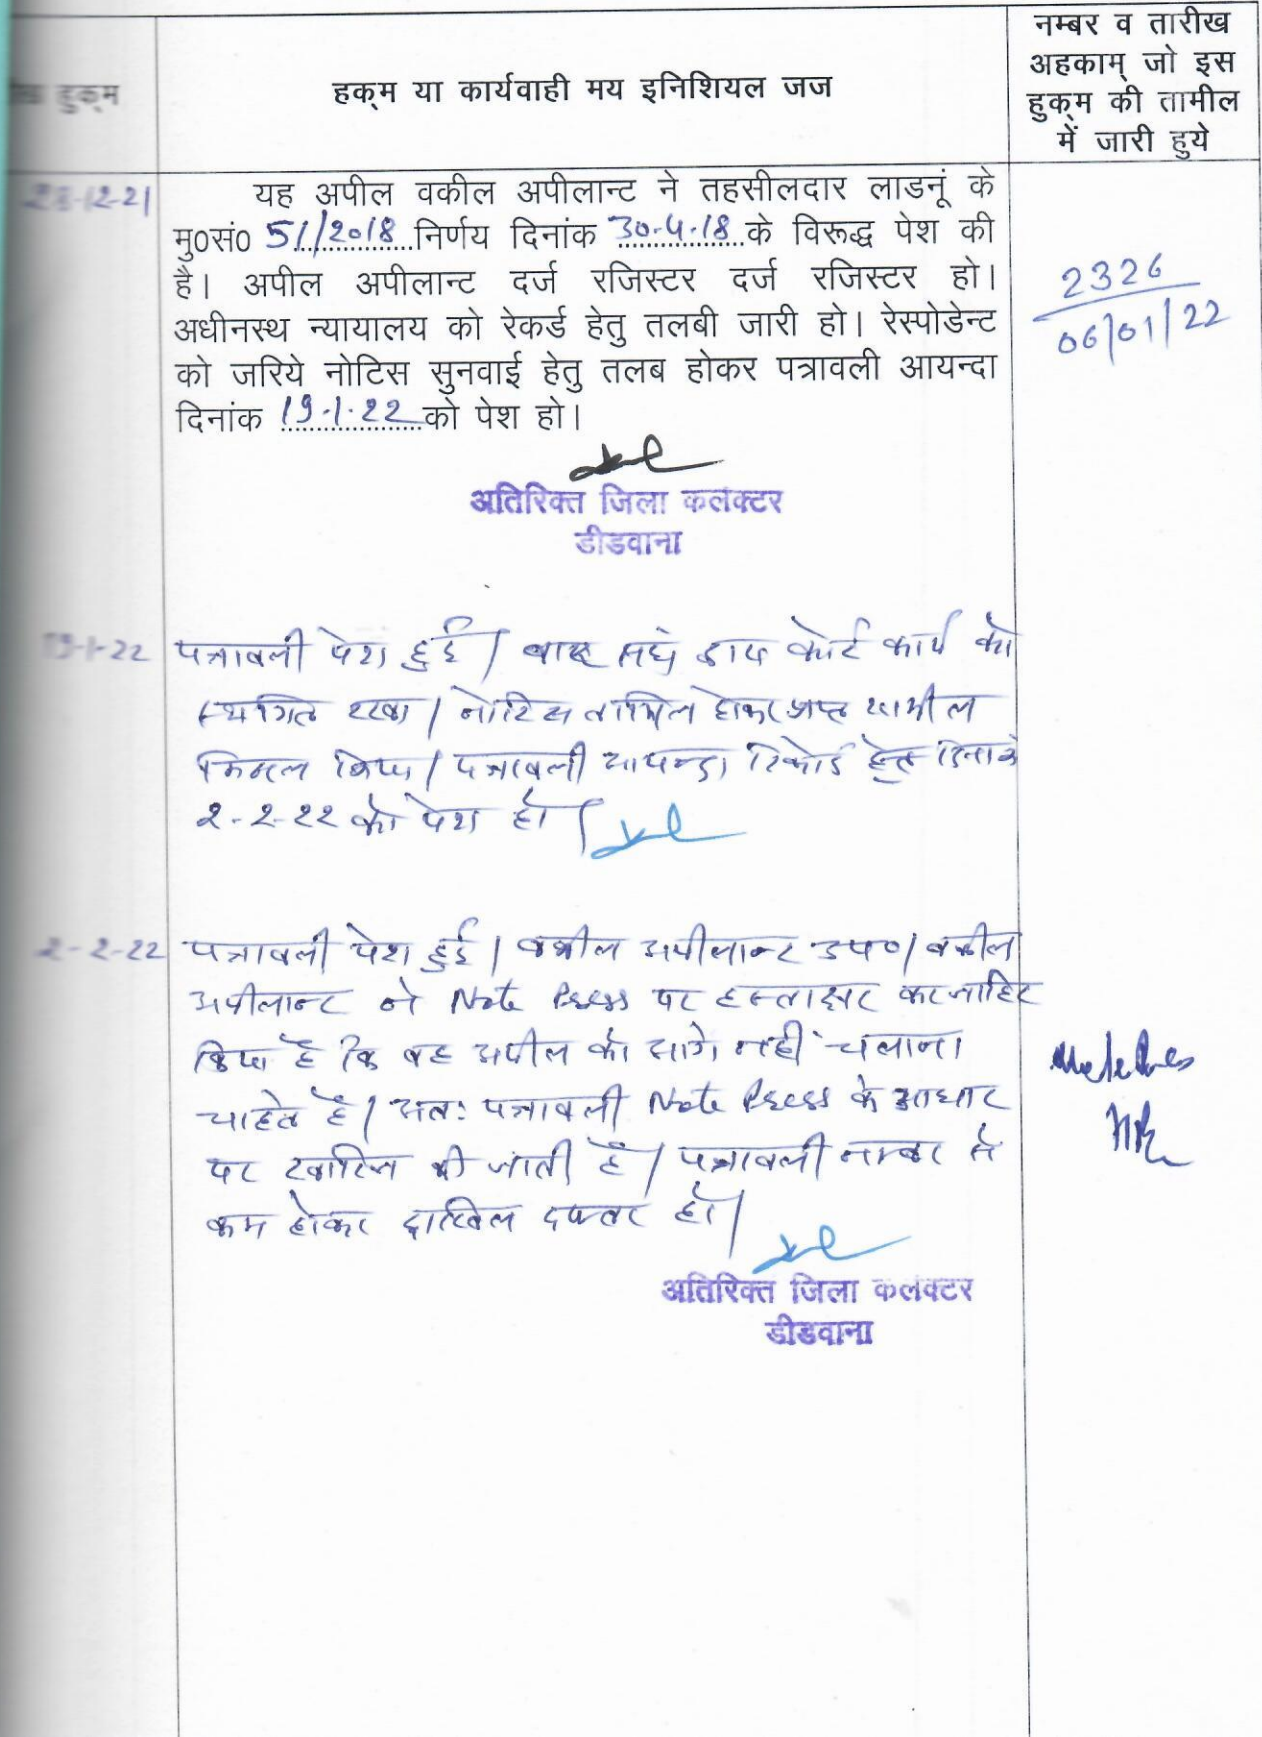 हुक्म
हक्म या कार्यवाही मय इनिशियल जज
नम्बर व तारीख
अहकाम् जो इस
हुक्म की तामील
में जारी हुये
-12-21
यह अपील वकील अपीलान्ट ने तहसीलदार लाडनूं के
मु0सं0 51/2018 निर्णय दिनांक 30-4-18 के विरूद्ध पेश की
है। अपील अपीलान्ट दर्ज रजिस्टर दर्ज रजिस्टर हो।
अधीनस्थ न्यायालय को रेकर्ड हेतु तलबी जारी हो। रेस्पोडेन्ट
को जरिये नोटिस सुनवाई हेतु तलब होकर पत्रावली आयन्दा
दिनांक 19.1.22 को पेश हो।
2326
06/01/22
अतिरिक्त जिला कलक्टर
डीडवाना
19-1-22
पत्रावली पेश हुई। कोर्ट कार्य को
स्थगित रखा। नोटिस तामिल होकर प्राप्त
किया। पत्रावली आयन्दा रिकोर्ड हेतु दिनांक
2-2-22 को पेश हो।
2-2-22
पत्रावली पेश हुई। वकील अपीलान्ट उप0। वकील
अपीलान्ट ने Note Press पर हस्ताक्षर कर जाहिर
किया है कि वह अपील को आगे नहीं चलाना
चाहते है। अतः पत्रावली Note Press के आधार
पर खारिज की जाती है। पत्रावली नम्बर से
कम होकर दाखिल दफ्तर हो।
अतिरिक्त जिला कलक्टर
डीडवाना